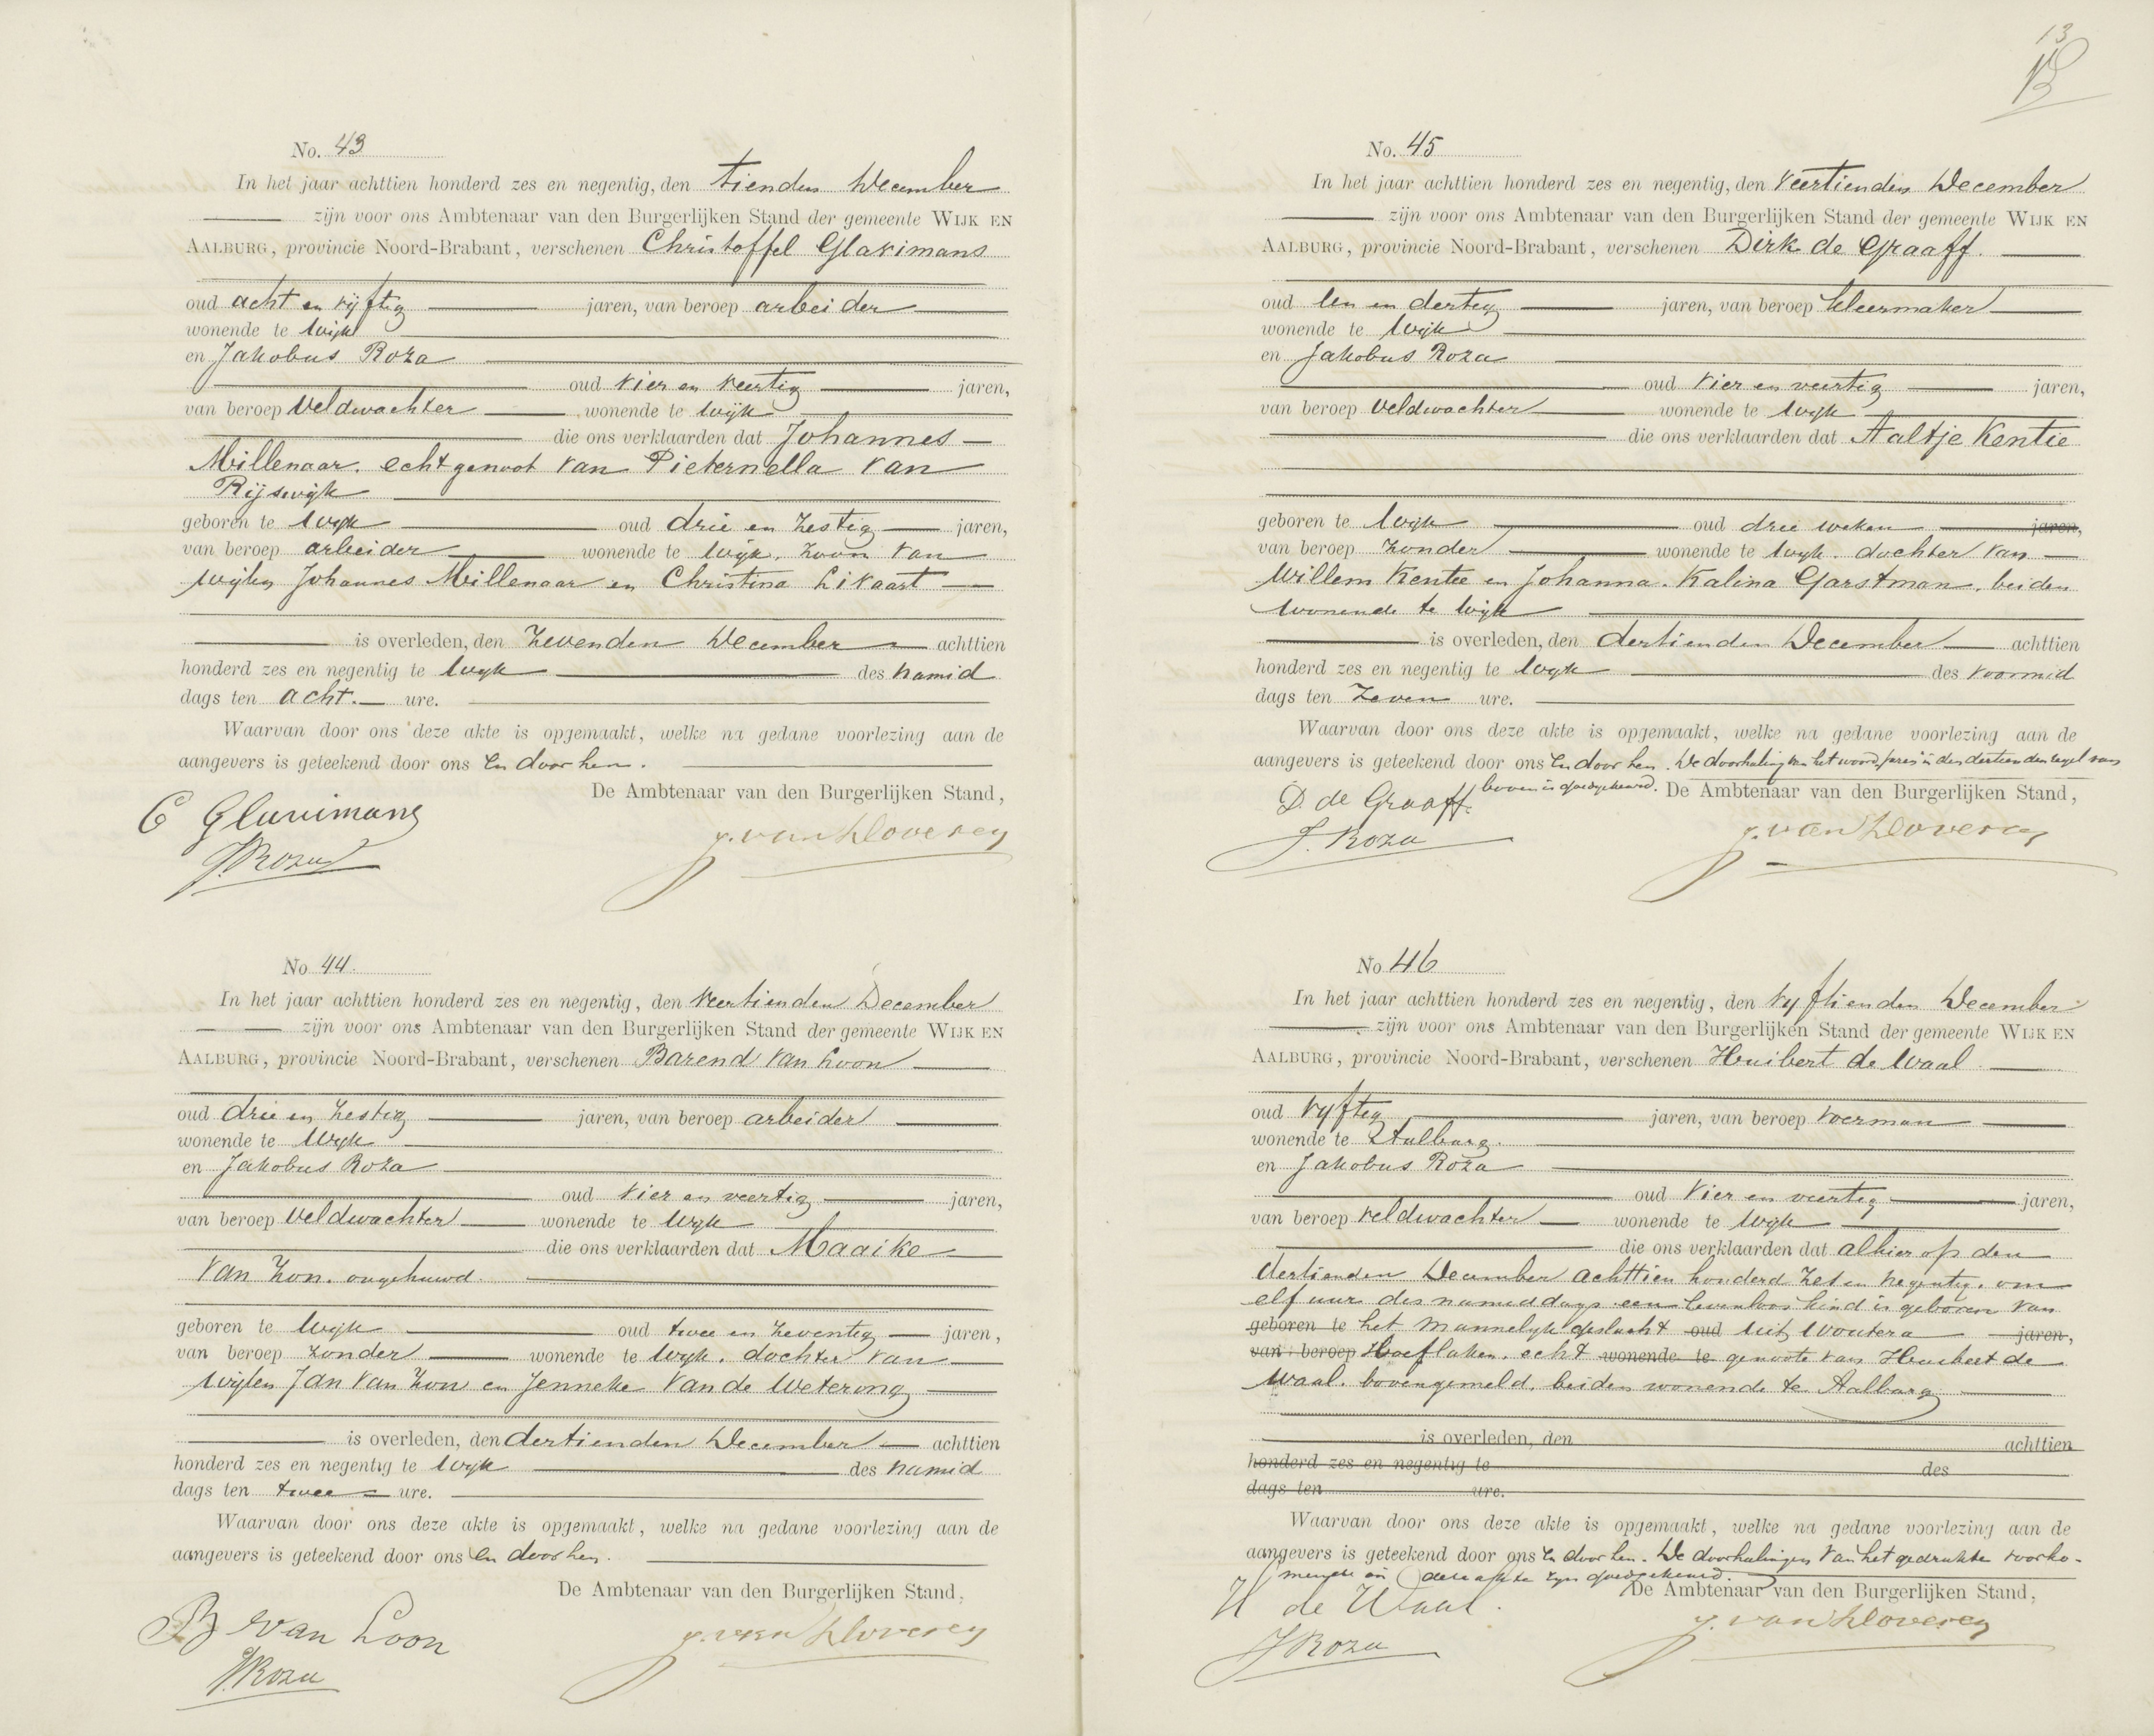 No. 43
In het jaar achttien honderd zes en negentig, den tienden December
zijn voor ons Ambtenaar van den Burgerlijken Stand der gemeente WIJK EN
AALBURG, provincie Noord-Brabant, verschenen Christoffel Glavimans
oud acht en vijftig jaren, van beroep arbeider
wonende te Wijk
en Jakobus Roza
oud vier en veertig jaren,
van beroep Veldwachter wonende te Wijk
die ons verklaarden dat Johannes
Millenaar. echtgenoot van Pieternella van
Rijswijk
geboren te Wijk oud drie en zestig jaren,
van beroep arbeider wonende te Wijk, zoon van
Wijlen Johannes Millenaar en Christina Livaart
is overleden, den zevenden December achttien
honderd zes en negentig te Wijk des namid
dags ten acht. ure.
Waarvan door ons deze akte is opgemaakt, welke na gedane voorlezing aan de
aangevers is geteekend door ons en door hen.
De Ambtenaar van den Burgerlijken Stand,
C Glavimans
J. Roza
J. van Kloverey
No 44.
In het jaar achttien honderd zes en negentig, den veertienden December
zijn voor ons Ambtenaar van den Burgerlijken Stand der gemeente WIJK EN
AALBURG, provincie Noord-Brabant, verschenen Barend van Loon
oud drie en zestig jaren, van beroep arbeider
wonende te Wijk
en Jakobus Roza
oud vier en veertig jaren,
van beroep Veldwachter wonende te Wijk
die ons verklaarden dat Maaike
van Zon. ongehuwd.
geboren te Wijk oud twee en zeventig jaren,
van beroep zonder wonende te Wijk. dochter van
Wijlen Jan van Zon en Jenneke van de Wetering
is overleden, den dertienden December achttien
honderd zes en negentig te Wijk des namid
dags ten twee ure.
Waarvan door ons deze akte is opgemaakt, welke na gedane voorlezing aan de
aangevers is geteekend door ons en door hen.
De Ambtenaar van den Burgerlijken Stand,
B van Loon
J. Roza
J. van Kloverey
13
No. 45
In het jaar achttien honderd zes en negentig, den veertienden December
zijn voor ons Ambtenaar van den Burgerlijken Stand der gemeente WIJK EN
AALBURG, provincie Noord-Brabant, verschenen Dirk de Graaff.
oud een en dertig jaren, van beroep kleermaker
wonende te Wijk
en Jakobus Roza
oud vier en veertig jaren,
van beroep Veldwachter wonende te Wijk
die ons verklaarden dat Aaltje Kentie
geboren te Wijk oud drie weken jaren,
van beroep zonder wonende te Wijk. dochter van
Willem Kentie en Johanna. Kalina Garstman. beiden
wonende te Wijk
is overleden, den dertienden December achttien
honderd zes en negentig te Wijk des voormid
dags ten zeven ure.
Waarvan door ons deze akte is opgemaakt, welke na gedane voorlezing aan de
aangevers is geteekend door ons en door hen. De doorhaling van het woord jaren in den dertienden regel van
boven is goedgekeurd. De Ambtenaar van den Burgerlijken Stand,
D de Graaff.
J. Roza
J. van Kloverey
No 46
In het jaar achttien honderd zes en negentig, den vyftienden December
zijn voor ons Ambtenaar van den Burgerlijken Stand der gemeente WIJK EN
AALBURG, provincie Noord-Brabant, verschenen Huibert de Waal.
oud vyftig jaren, van beroep voerman
wonende te Aalburg.
en Jakobus Roza
oud vier en veertig jaren,
van beroep veldwachter wonende te Wijk
die ons verklaarden dat alhier op den
dertienden December achttien honderd zes en negentig. om
elf uur des namiddags een levenloos kind is geboren van
geboren te het mannelyk geslacht oud uit Woutera jaren,
van beroep Hoeflaken. echt wonende te genoote van Huibert de
Waal. bovengemeld. beiden wonende te Aalburg
is overleden, den achttien
honderd zes en negentig te des
dags ten ure.
Waarvan door ons deze akte is opgemaakt, welke na gedane voorlezing aan de
aangevers is geteekend door ons en door hen. De doorhalingen van het gedrukte voorko-
mende in deze akte zyn goedgekeurd.
De Ambtenaar van den Burgerlijken Stand,
H de Waal.
J Roza
J. van Kloverey